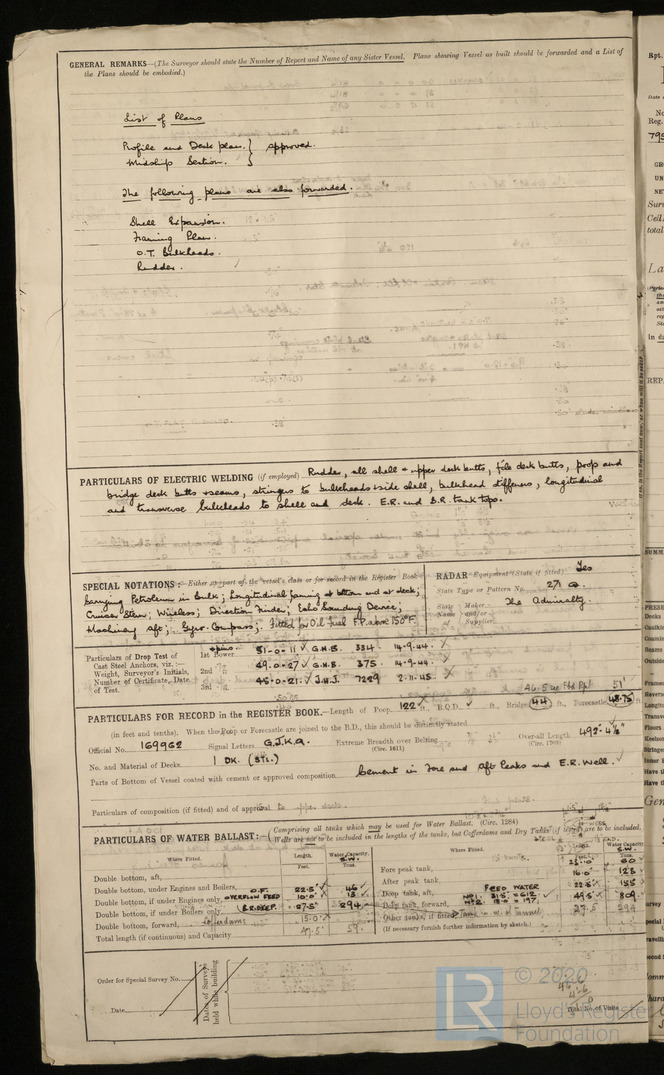 GENERAL REMARKS—(The Surveyor should state the Number of Report and Name of any Sister Vessel. Plans showing Vessel as built should be forwarded and a List of
the Plans should be embodied.)
List of Plans
Profile and Deck plan. } approved.
Midship Section. }
The following plans are also forwarded.
Shell Expansion.
Framing Plan.
O.T. Bulkheads.
Rudder.
PARTICULARS OF ELECTRIC WELDING (if employed) Rudder, all shell & upper deck butts, f'cle deck butts, poop and
bridge deck butts & seams, stringers to bulkheads & side shell, bulkhead stiffeners, longitudinal
and transverse bulkheads to shell and deck. E.R. and B.R. tank tops.
SPECIAL NOTATIONS:—Either as part of the vessel's class or for record in the Register Book
Carrying Petroleum in bulk; Longitudinal framing at bottom and at deck;
Cruiser Stern; Wireless; Direction Finder; Echo Sounding Device;
Machinery aft; Gyro Compass; Fitted for Oil fuel F.P. above 150°F.
RADAR Equipment (State if fitted) Yes
State Type or Pattern No. 271 Q.
State Name and/or of Maker Supplier The Admiralty.
Particulars of Drop Test of Cast Steel Anchors, viz.:— Weight, Surveyor's Initials, Number of Certificate, Date of Test.
1st Bower 51-0-11 G.H.B. 334 14-9-44.
2nd 49-0-27 G.H.B. 375 14-9-44.
3rd 45-0-21 J.H.J. 7289 2-11-45.
PARTICULARS FOR RECORD in the REGISTER BOOK.—Length of Poop 122 ft., R.Q.D. ft., Bridge 44 ft., Forecastle 48.75 ft.
(in feet and tenths). When the Poop or Forecastle are joined to the B.D., this should be distinctly stated
Official No. 169962 Signal Letters G.J.K.Q. Extreme Breadth over Belting (Circ. 1611) Over-all Length (Circ. 1703) 492'-4⅛"
No. and Material of Decks 1 DK. (Stl.)
Parts of Bottom of Vessel coated with cement or approved composition Cement in Fore and Aft Peaks and E.R. Well.
Particulars of composition (if fitted) and of approval
PARTICULARS OF WATER BALLAST:—(Comprising all tanks which may be used for Water Ballast. (Circ. 1284)
Wells are not to be included in the lengths of the tanks, but Cofferdams and Dry Tanks (if any) are to be included.
Where Fitted. Length. Feet. Water Capacity. S.W. Tons.
Double bottom, aft,
Double bottom, under Engines and Boilers, O.F. 22.5' 46
Double bottom, if under Engines only, OVERFLOW FEED 10.0' 13
Double bottom, if under Boilers only, 27.5' 294
Double bottom, forward, Cofferdams 15.0'
Total length (if continuous) and Capacity 47.5' 59
Where Fitted. Water Capacity S.W. Tons.
Fore peak tank, 60
After peak tank, 16.0' 123
Deep tank, aft, FEED WATER 22.5' 155
Deep tank, forward, 49.5' 809
Other tanks, if fitted 27.5 294
(If necessary furnish further information by sketch.)
Order for Special Survey No.
Date
Dates of Surveys held while building
Total No. of Visits
© 2020
LR
Lloyd's Register
Foundation